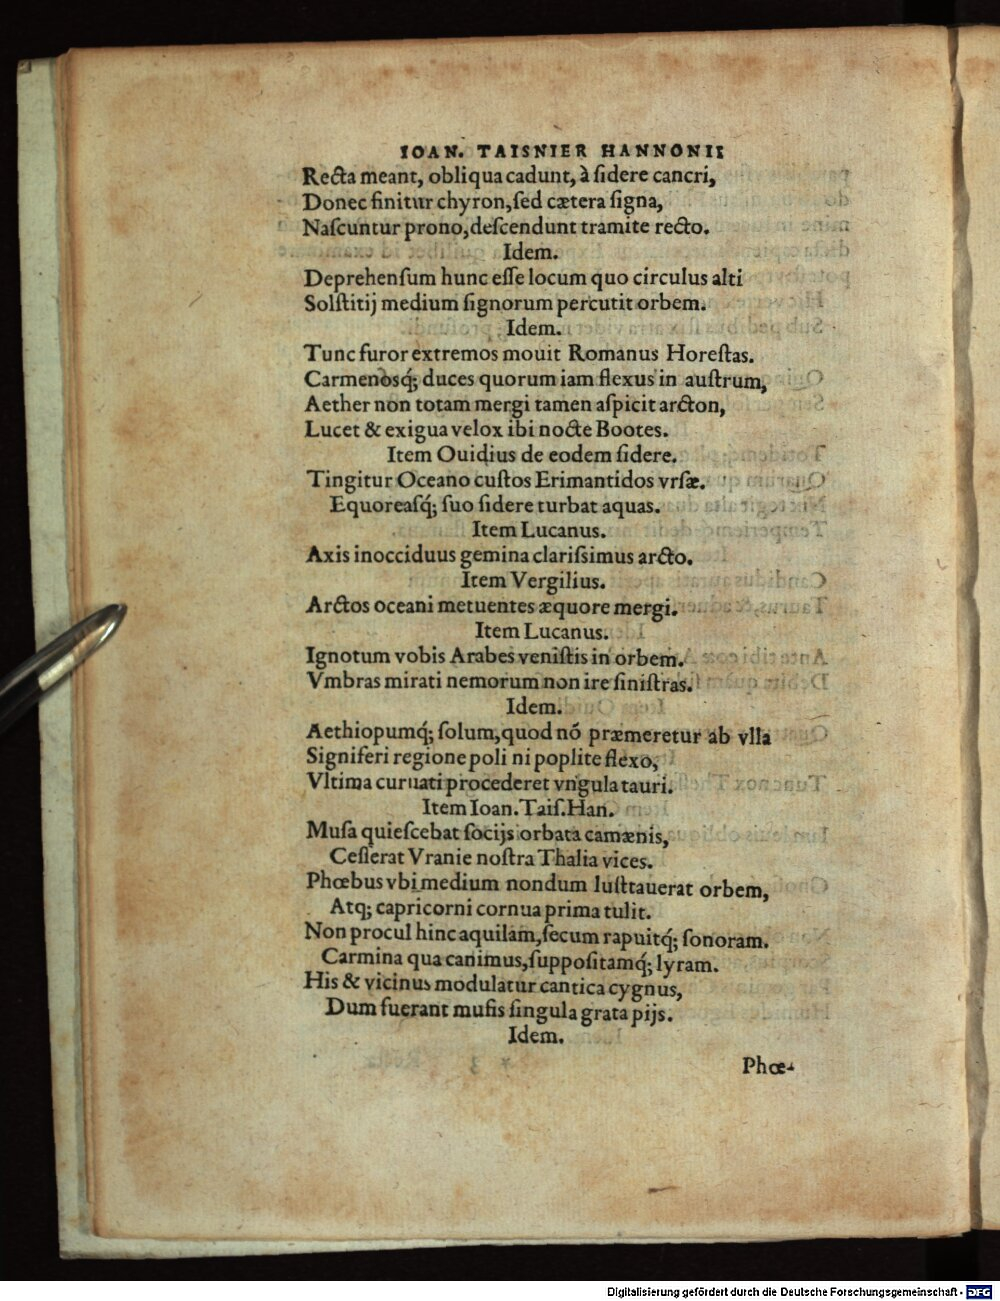 IOAN. TAISNIER HANNONII
Recta meant, obliqua cadunt, à ſidere cancri,
Donec finitur chyron, ſed cætera ſigna,
Naſcuntur prono, deſcendunt tramite recto.
Idem.
Deprehenſum hunc eſſe locum quo circulus alti
Solſtitij medium ſignorum percutit orbem.
Idem.
Tunc furor extremos mouit Romanus Horeſtas.
Carmenosq́; duces quorum iam flexus in auſtrum,
Aether non totam mergi tamen aſpicit arcton,
Lucet & exigua velox ibi nocte Bootes.
Item Ouidius de eodem ſidere.
Tingitur Oceano cuſtos Erimantidos vrſæ.
Equoreaſq́; ſuo ſidere turbat aquas.
Item Lucanus.
Axis inocciduus gemina clariſsimus arcto.
Item Vergilius.
Arctos oceani metuentes æquore mergi.
Item Lucanus.
Ignotum vobis Arabes veniſtis in orbem.
Vmbras mirati nemorum non ire ſiniſtras.
Idem.
Aethiopumq́; ſolum, quod nõ præmeretur ab vlla
Signiferi regione poli ni poplite flexo,
Vltima curuati procederet vngula tauri.
Item Ioan. Taiſ. Han.
Muſa quieſcebat ſocijs orbata camænis,
Ceſſerat Vranie noſtra Thalia vices.
Phœbus vbi medium nondum luſttauerat orbem,
Atq; capricorni cornua prima tulit.
Non procul hinc aquilam, ſecum rapuitq́; ſonoram.
Carmina qua canimus, ſuppoſitamq́; lyram.
His & vicinus modulatur cantica cygnus,
Dum fuerant muſis ſingula grata pijs.
Idem.
Phœ-
Digitalisierung gefördert durch die Deutsche Forschungsgemeinschaft - DFG